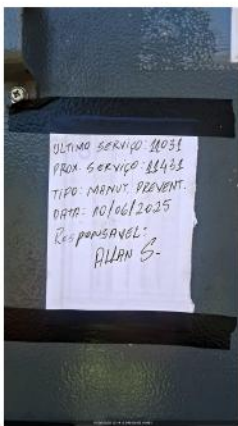 ULTIMO SERVIÇO: 11031
PROX. SERVIÇO: 11431
TIPO: MANUT. PREVENT.
DATA: 10/06/2025
RESPONSAVEL:
ALLAN S.